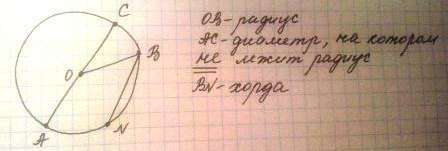 C
B
O
A
N
OB - радиус
AC - диаметр, на котором
не лежит радиус
BN - хорда